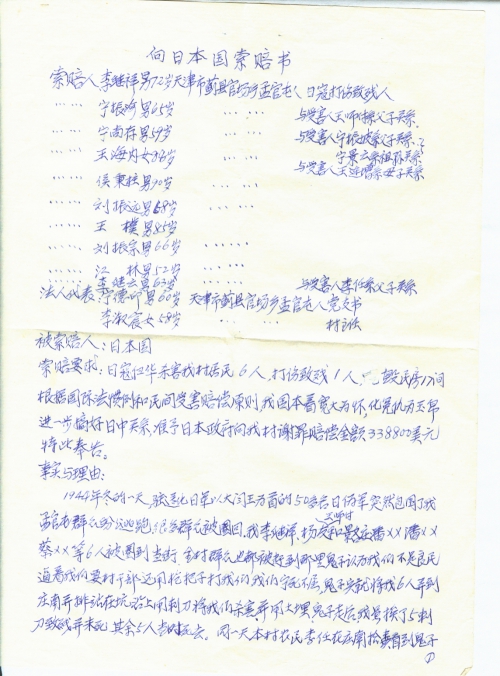 向日本国索赔书
索赔人李继祥男72岁天津市蓟县官场乡孟官屯人日寇打伤致残人
…… 宁振吟男65岁 …… 与受害人 父子关系
…… 宁南存男59岁 …… 与受害人宁振 父子关系
宁景云系祖孙关系
…… 王海内女36岁 …… 与受害人王 系父子关系
…… 侯秉 男90岁 ……
…… 刘振远男68岁 ……
…… 王 樸男85岁
…… 刘振宗男66岁 ……
…… 江 林男52岁 ……
…… 李继云男63岁 与受害人李任系父子关系
法人代表:宁德 男60岁 天津市蓟县官场乡孟官屯人党支书
李淑宸女58岁 村主任
被索赔人:日本国
索赔要求:日寇 华杀害我村居民6人,打伤致残1人 毁民房17间
根据国际法惯例和民间受害赔偿原则,我国本着宽大为怀,化冤仇为玉帛
进一步搞好日中关系,准予日本政府向我村谢罪赔偿金额338800美元
特此奉告。
事实与理由:
1944年冬的一天, 日军以大 为首的50多名日伪军突然包围了我
孟官屯群众四分逃跑,很多群众被围回,我李继祥、杨 潘××潘××
蔡××等6人被围到当街,全村群众也都被赶到那里鬼子认为我们不是良民
逼着我们要村干部还用枪把子打我们,我们宁死不屈,鬼子 就将我6人弄到
庄南并排站在坑沿上用刺刀将我们杀害并用土埋,鬼子走后,我 挨了5刺
刀致残并未死,其余5人当时死去。同一天本村农民李任在庄南拾粪看到鬼子
①